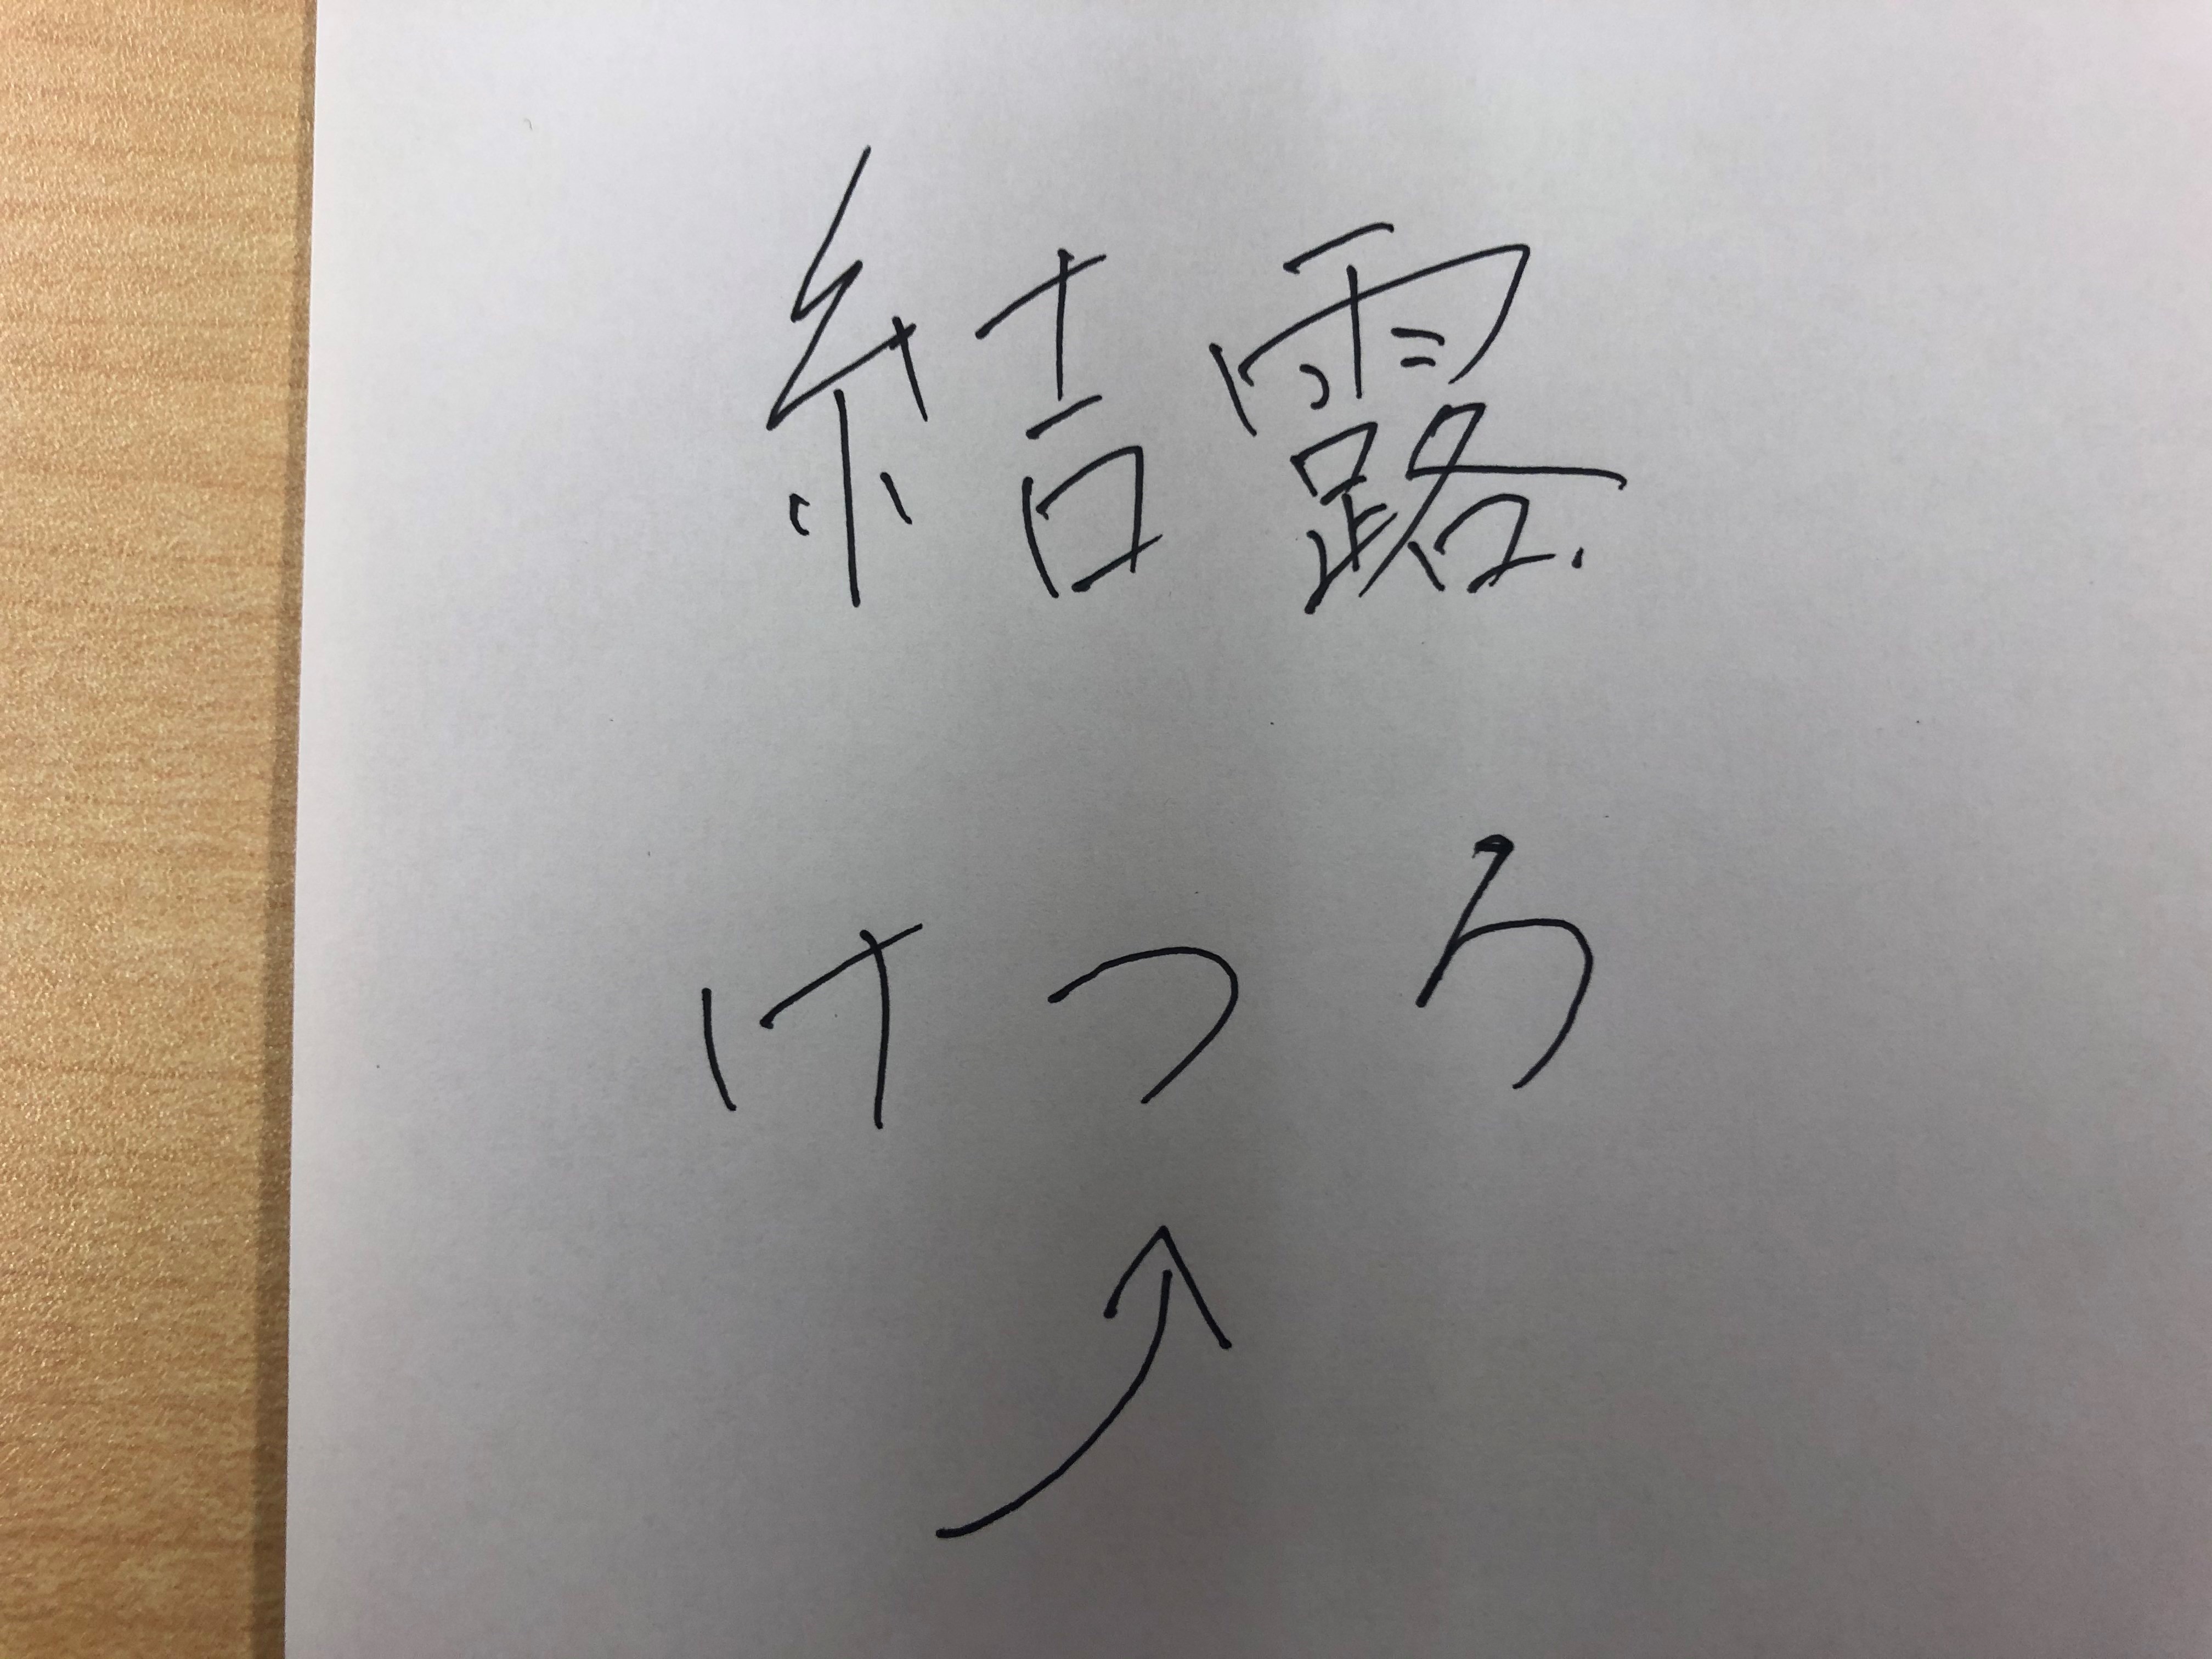 結露
けつろ